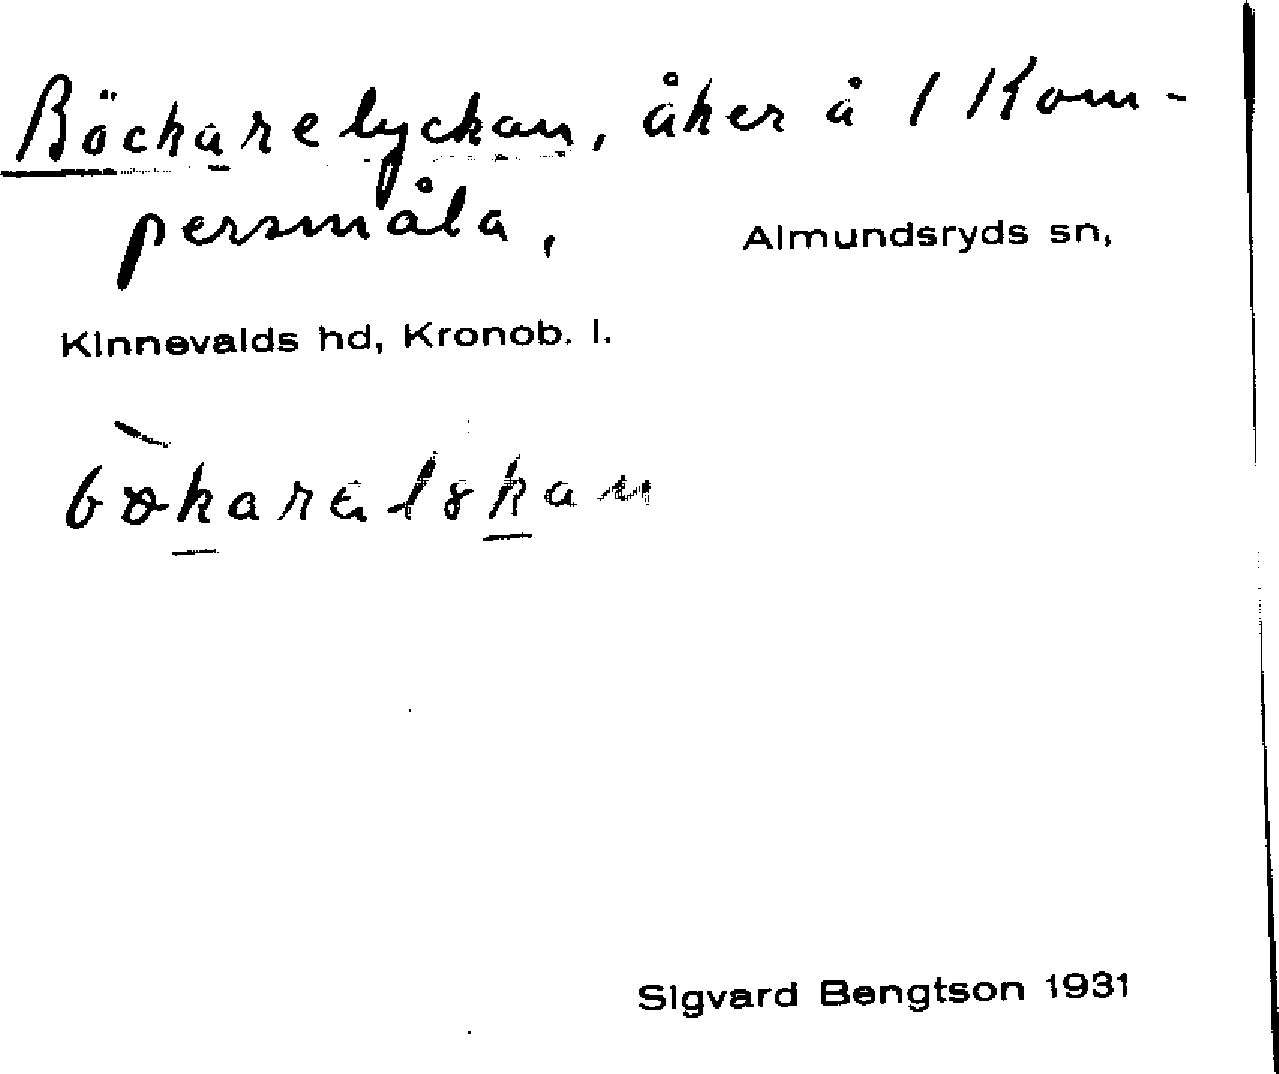 Böckarelyckan, åker å 1 Kom-
persmåla, Almundsryds sn,
Kinnevalds hd, Kronob. l.
Sigvard Bengtson 1931